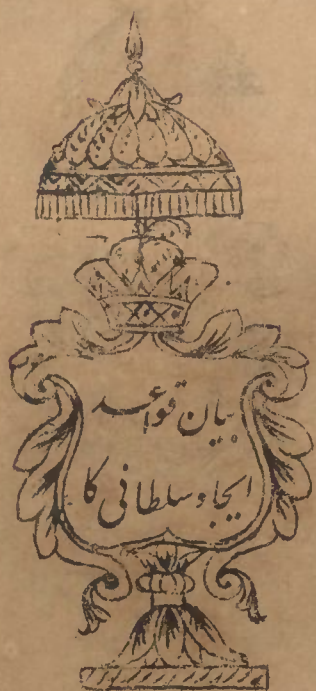 بیان قواعد
ایجاد سلطانی کا